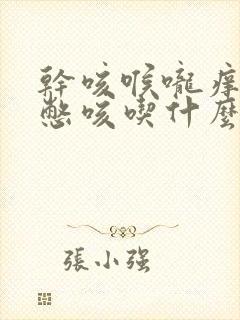 幹咳喉嚨癢
憋咳喫什麼
張小強